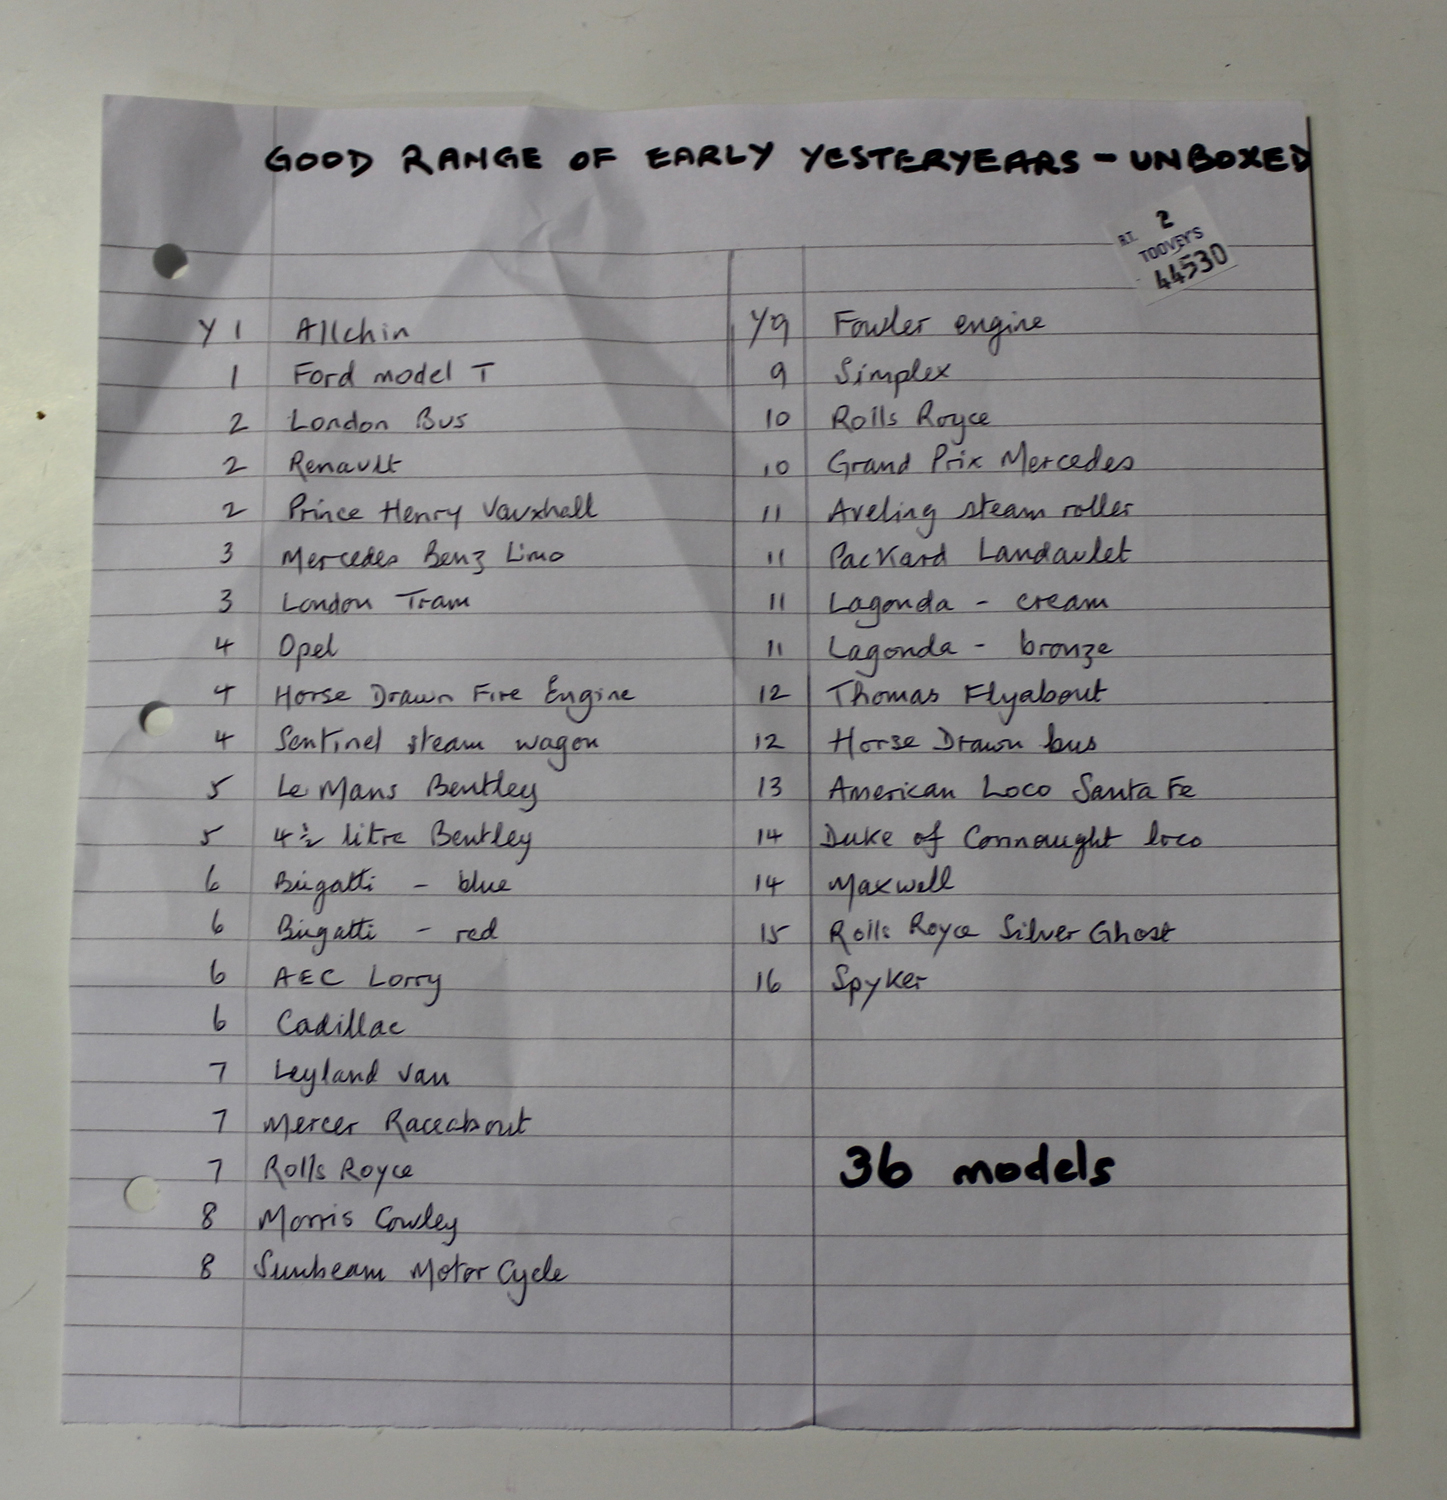 GOOD RANGE OF EARLY YESTERYEARS - UNBOXED
R.T. 2
TOOVEY'S
44530
Y 1 Allchin
1 Ford model T
2 London Bus
2 Renault
2 Prince Henry Vauxhall
3 Mercedes Benz Limo
3 London Tram
4 Opel
4 Horse Drawn Fire Engine
4 Sentinel steam wagon
5 Le Mans Bentley
5 4½ litre Bentley
6 Bugatti - blue
6 Bugatti - red
6 AEC Lorry
6 Cadillac
7 Leyland van
7 Mercer Raceabout
7 Rolls Royce
8 Morris Cowley
8 Sunbeam Motor Cycle
Y9 Fowler engine
9 Simplex
10 Rolls Royce
10 Grand Prix Mercedes
11 Aveling steam roller
11 Packard Landaulet
11 Lagonda - cream
11 Lagonda - bronze
12 Thomas Flyabout
12 Horse Drawn bus
13 American Loco Santa Fe
14 Duke of Connaught loco
14 Maxwell
15 Rolls Royce Silver Ghost
16 Spyker
36 models